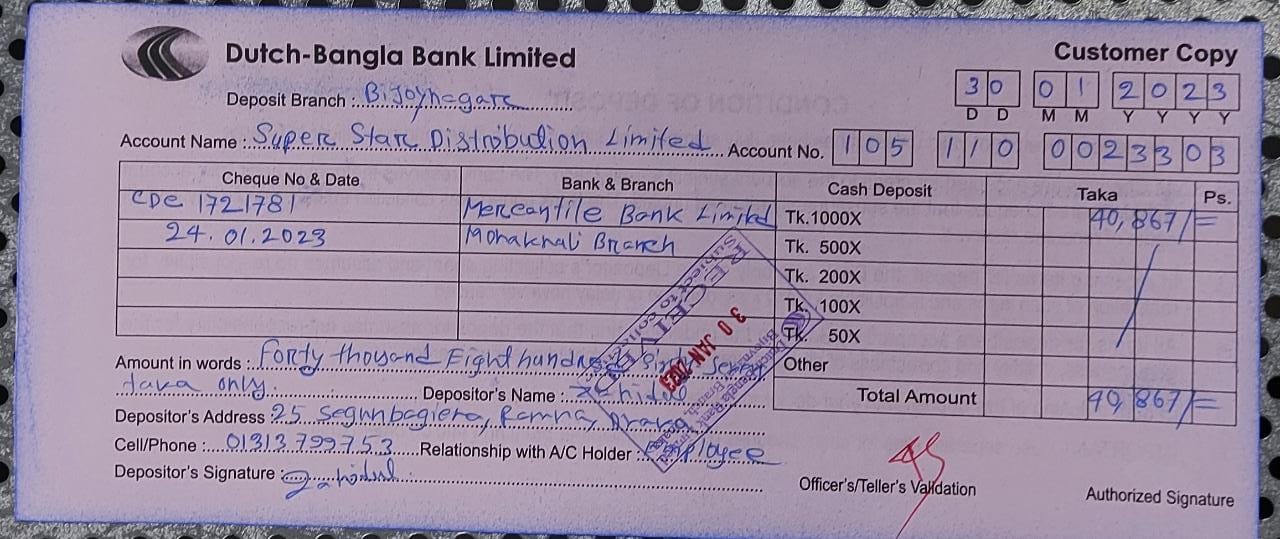 Dutch-Bangla Bank Limited
Customer Copy
Deposit Branch : Bijoynagar
30 01 2023
D D M M Y Y Y Y
Account Name : Super Star Distribution Limited Account No. 105 110 0023303
Cheque No & Date Bank & Branch Cash Deposit Taka Ps.
CDC 1721781 Mercantile Bank Limited Tk.1000X 40,867/=
24.01.2023 Mohakhali Branch Tk. 500X
Tk. 200X
Tk. 100X
Tk. 50X
Other
Total Amount 40,867/=
Amount in words : Forty thousand Eight hundred sixty seven
taka only. Depositor's Name : Zahidul
Depositor's Address 25 Segunbagiera, Ramna, Dhaka
Cell/Phone : 01313799753 Relationship with A/C Holder : Employee
Depositor's Signature : Zahidul
Officer's/Teller's Validation
Authorized Signature
RECEIVED
Subject to Collection
30 JAN 2023
Dutch-Bangla Bank Limited
Bijoynagar Branch,